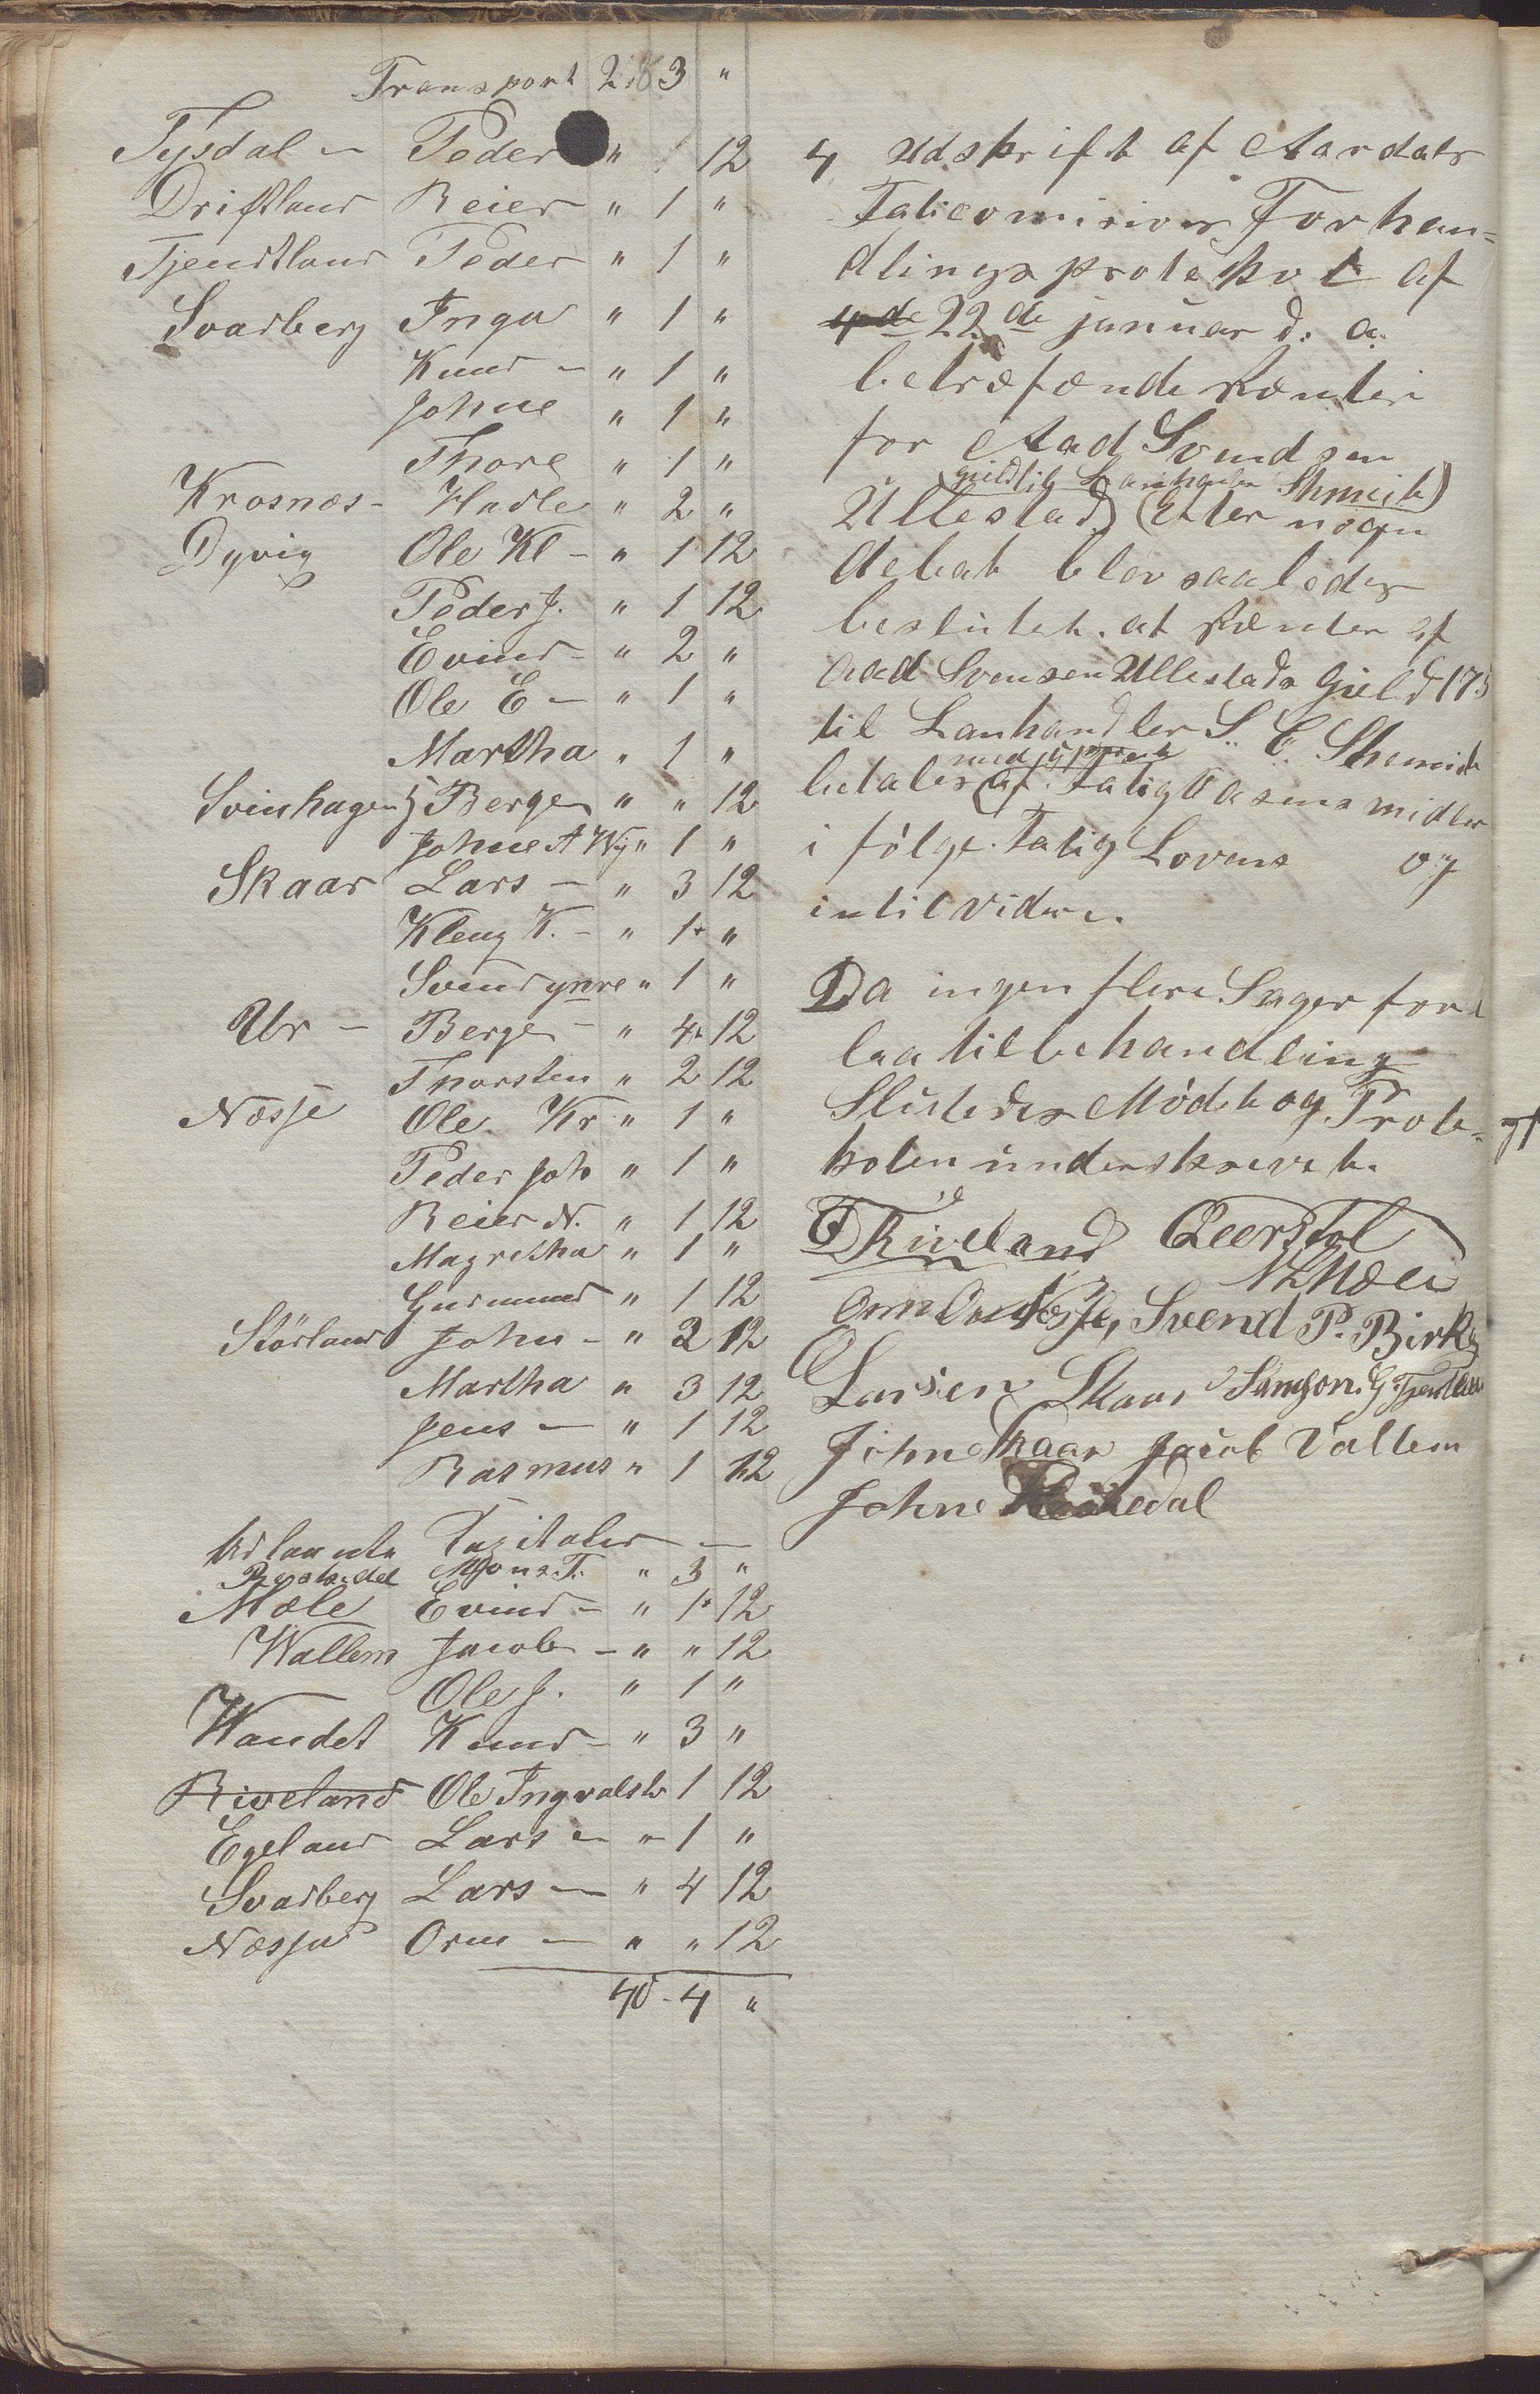 Transport 28 3 "
Tysdal - Peder " 1 12
Driftland Reier " 1 "
Tjendtland Peder " 1 "
Svadberg Inga " 1 "
Knud - " 1 "
Johne " 1 "
Thore " 1 "
Krosnæs - Hadle " 2 "
Dyvig Ole Kl - " 1 12
Peder J. " 1 12
Evind - " 2 "
Ole E - " 1 "
Martha " 1 "
Svinhagen Berge " " 12
Johne A " 1 "
Skaar Lars - " 3 12
Kleng K. - " 1 "
Svend yngre " 1 "
Ur - Berge - " 4 12
Thorsten " 2 12
Næsse Ole Kr " 1 "
Peder Joh " 1 "
Reier N. " 1 12
Magretha " 1 "
Gudmund " 1 12
Störland John - " 2 12
Martha " 3 12
Jens - " 1 12
Rasmus " 1 12
Udlaante Capitaler -
Mons T. " 3 "
Mæle Evind - " 1 12
Wallem Jacob - " " 12
Ole J. " 1 "
Wandet Knud - " 3 "
Riveland Ole Ingvalst 1 12
Egeland Lars - " 1 "
Svadberg Lars - " 4 12
Næssa Orm - " " 12
40 - 4 "
4 Udskrift af Aardals
Faticomision Forhan=
dlingsprotekol af
4de 22de januar d. a.
betræfende Renter
for Aad Svendsen
gieldtil Lanhandler Shmeit)
Ullestad) (Etter nogen
debat blev saaledes
beslutet. at Renten af
Aad Svensen Ullestads Gield 175
til Lanhandler S. C. Shmeit
betales af Fatigkasens midler
i følge Fatig Lovens og
intil videre.
Da ingen flere Sager for=
laa til behandling
Slutedes Mødet og Prote=
kolen underskrevet.
T Riveland
Orm Næsse, Svend P. Birkeland
Larsen Skaar Samson G. Tjentland
Johne Skaar Jacob Vallem
Johne